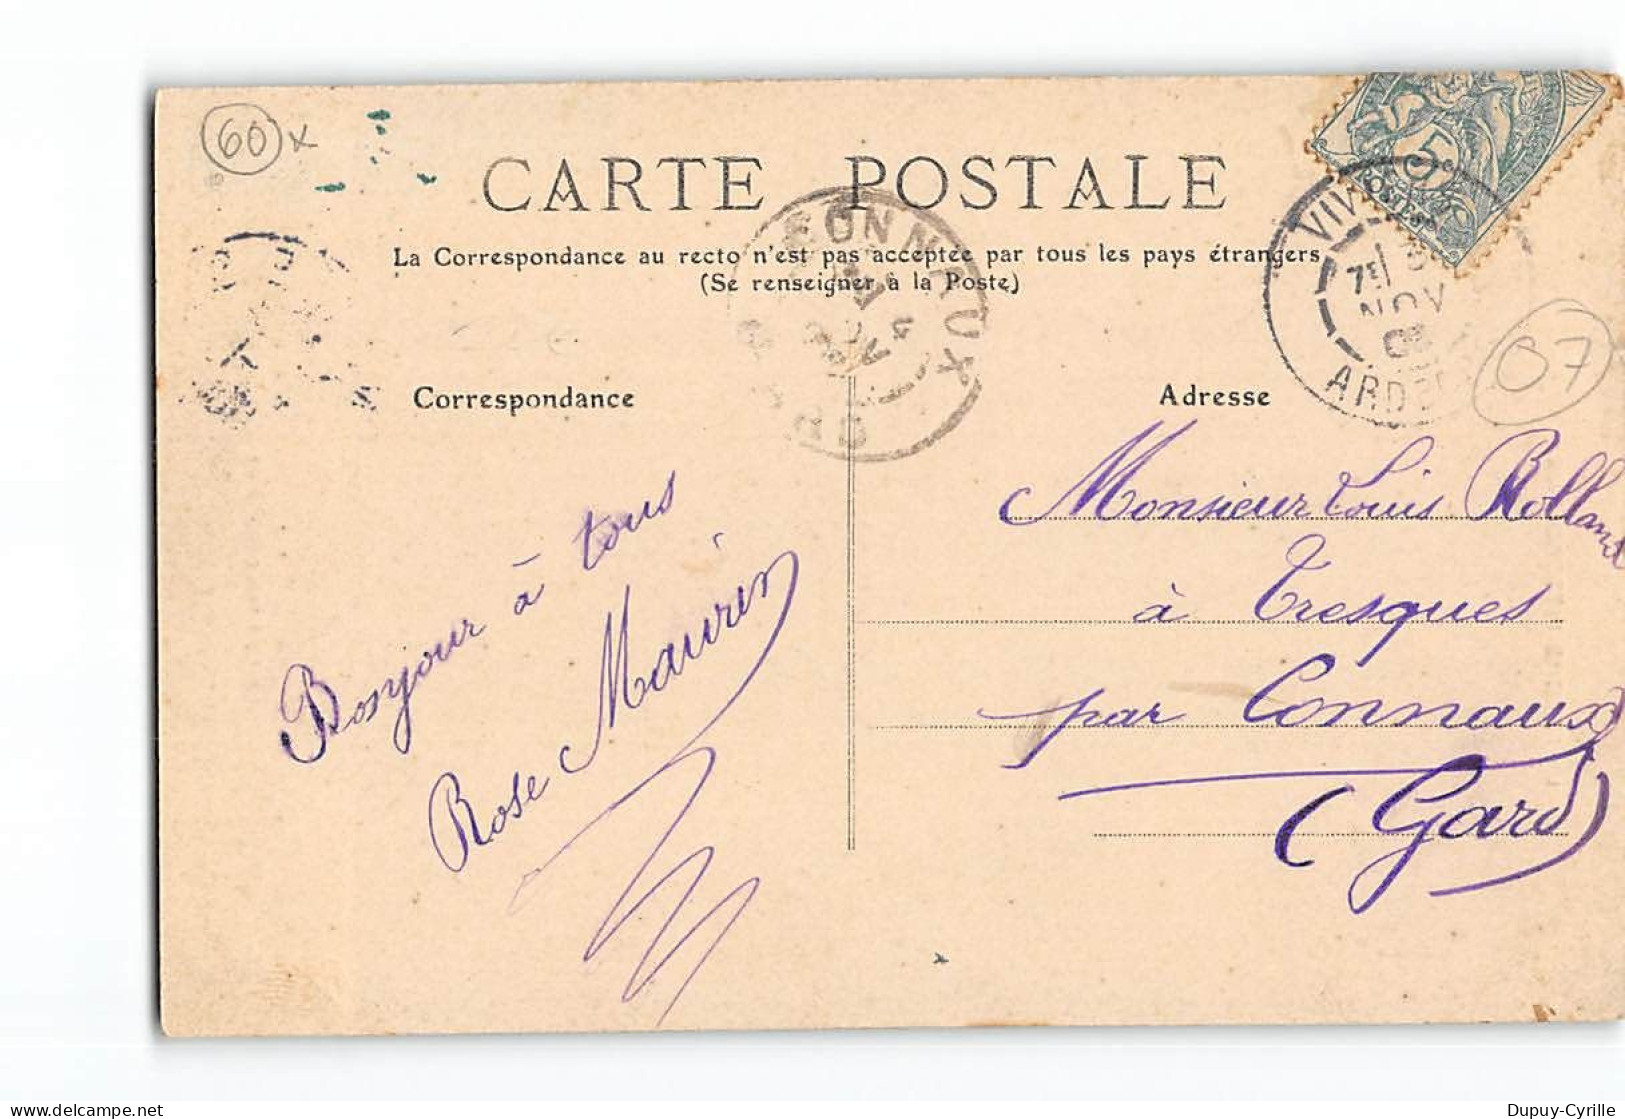 60 x
CARTE POSTALE
La Correspondance au recto n'est pas acceptée par tous les pays étrangers
(Se renseigner à la Poste)
5c
POSTES
VIV
7E
NOV
ARD
07
CONNAUX
GARD
Correspondance
Adresse
Bonjour à tous
Rose Maurin
Monsieur Louis Rolland
à Tresques
par Connaux
(Gard)
Dupuy-Cyrille